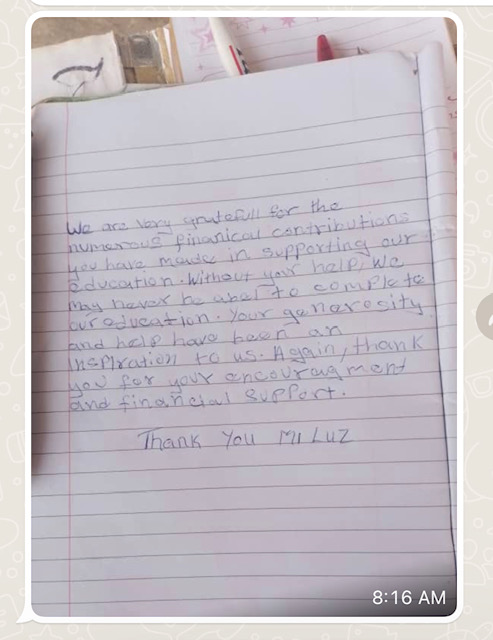 We are Very gratefull for the
numerous finanical contributions
you have made in supporting our
education. Without your help, We
may never be abel to complete
our education. Your generosity
and help have been an
inspiration to us. Again, thank
you for your encouragment
and financial support.
Thank You Mi Luz
8:16 AM